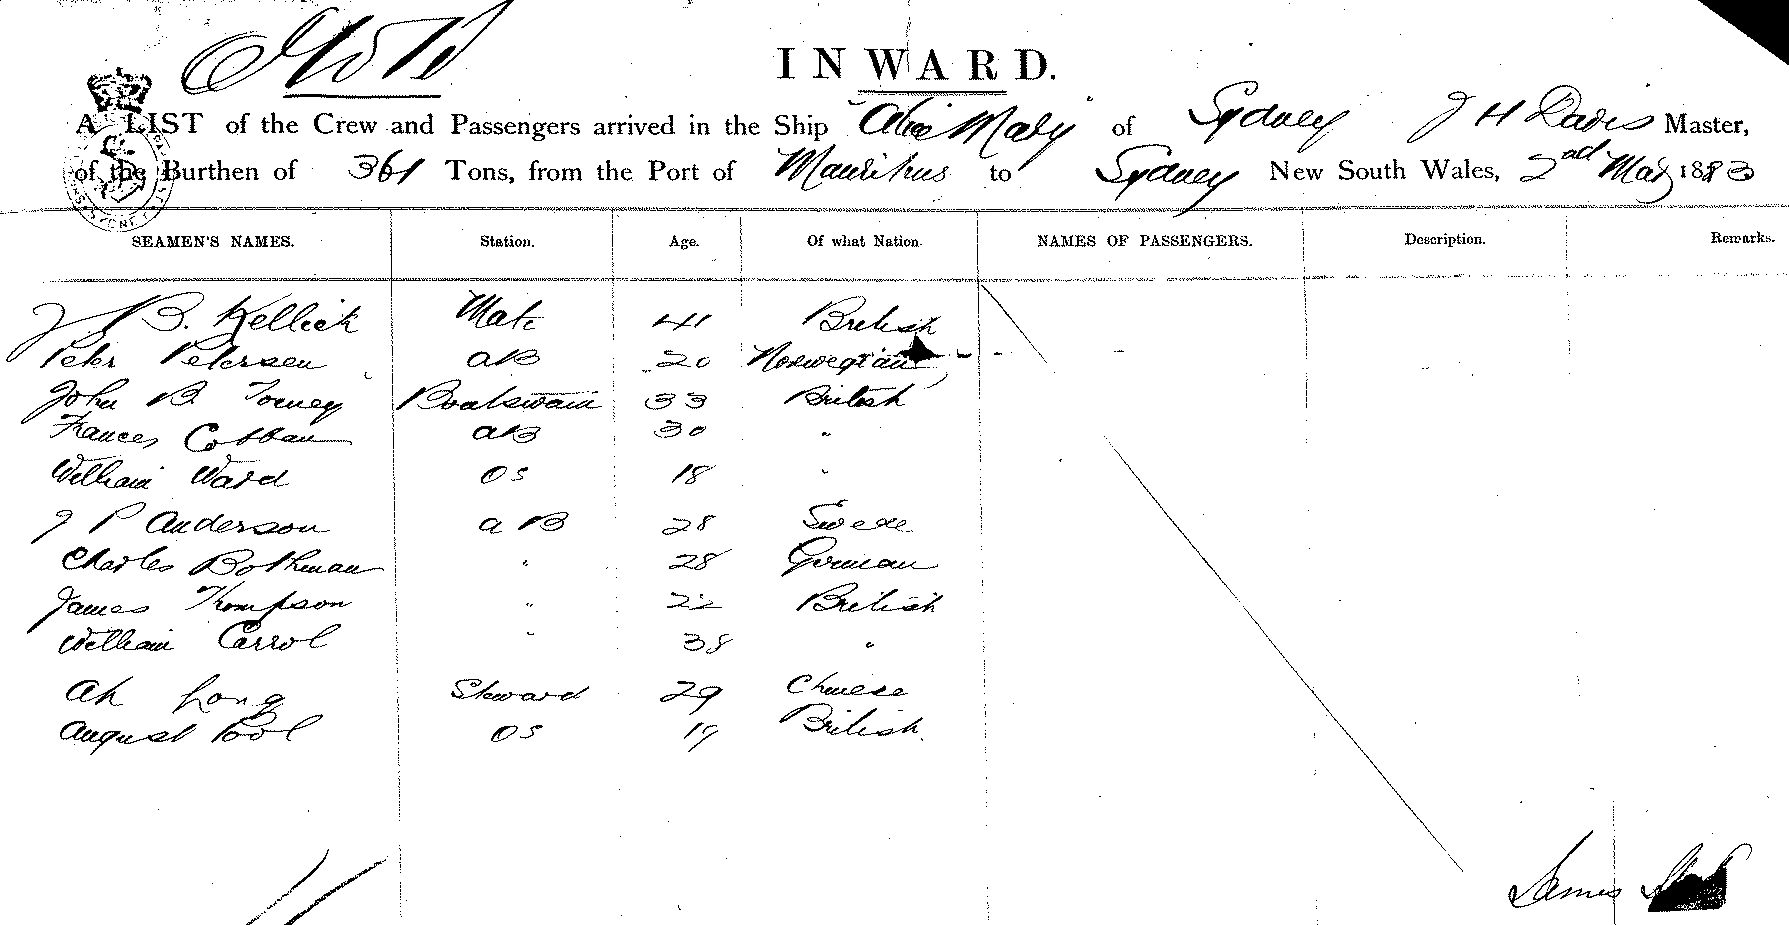 INWARD.
A LIST of the Crew and Passengers arrived in the Ship "Alice Mary" of Sydney J H Davis Master,
of the Burthen of 361 Tons, from the Port of Mauritius to Sydney New South Wales, 2nd May 1883
SEAMEN'S NAMES. Station. Age. Of what Nation. NAMES OF PASSENGERS. Description. Remarks.
J B. Kellick Mate 41 British
Peter Petersen AB 20 Norwegian
John B. Tomey Boatswain 33 British
Frances Cobban AB 30 "
William Ward OS 18 "
J P Anderson AB 28 Swede
Charles Bothman " 28 German
James Thompson " 22 British
William Carrol " 38 "
Ah Long Steward 29 Chinese
August Pool OS 19 British.
11
James